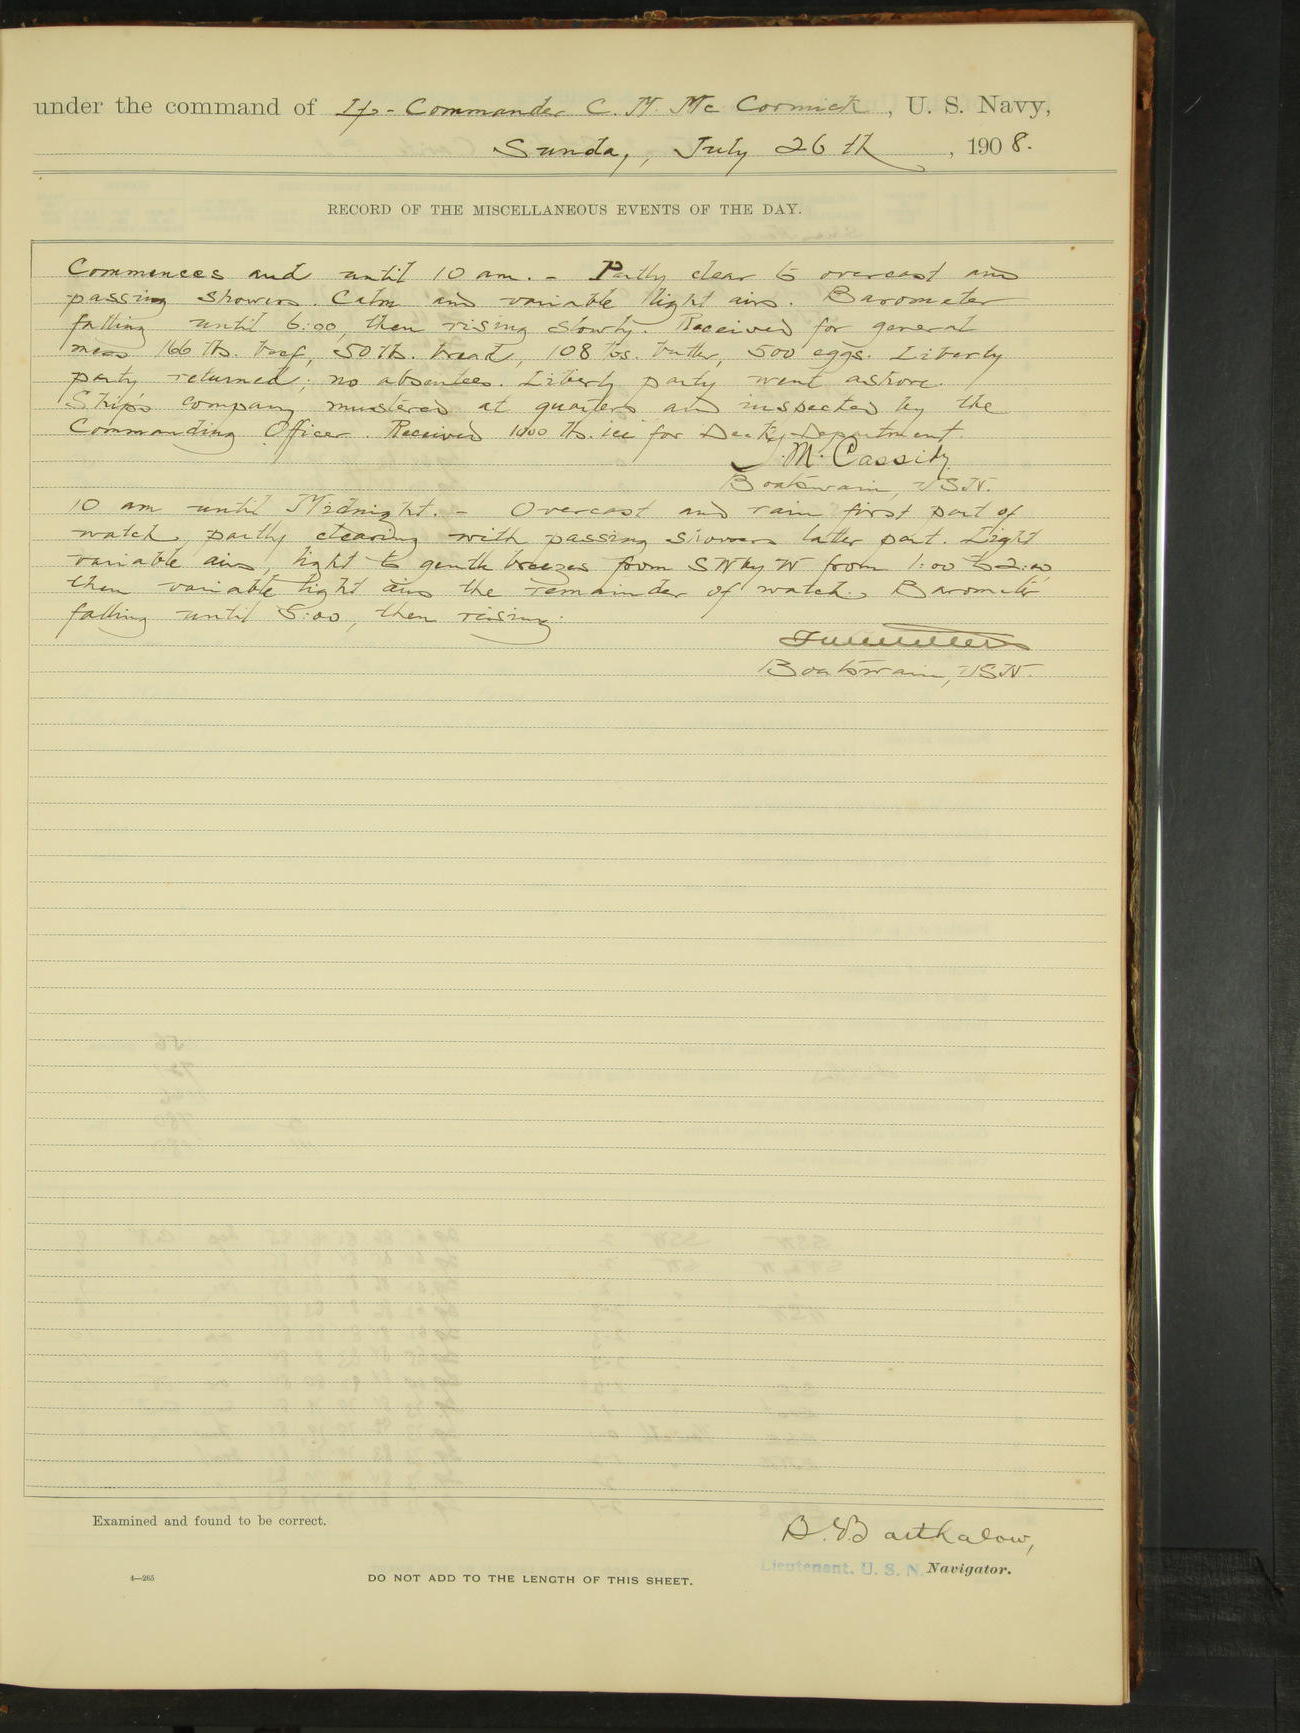 under the command of Lt-Commander C. M. McCormick, U. S. Navy,
Sunday, July 26th, 1908.
RECORD OF THE MISCELLANEOUS EVENTS OF THE DAY.
Commences and until 10 am. - Partly clear to overcast and
passing showers. Calm and variable light airs. Barometer
falling until 6:00, then rising slowly. Received for general
mess 166 lbs. beef, 50 lb. bread, 108 lbs. butter, 500 eggs. Liberty
party returned; no absentees. Liberty party went ashore.
Ship's company mustered at quarters and inspected by the
Commanding Officer. Received 1000 lbs. ice for Deck Department.
J. M. Cassidy
Boatswain, USN.
10 am until Midnight. - Overcast and rain first part of
watch, partly clearing with passing showers latter part. Light
variable airs, light to gentle breezes from SW by W from 1:00 to 2:00
then variable light airs the remainder of watch. Barometer
falling until 5:00, then rising.
Boatswain, USN.
Examined and found to be correct.
Lieutenant, U. S. N. Navigator.
4—265
DO NOT ADD TO THE LENGTH OF THIS SHEET.